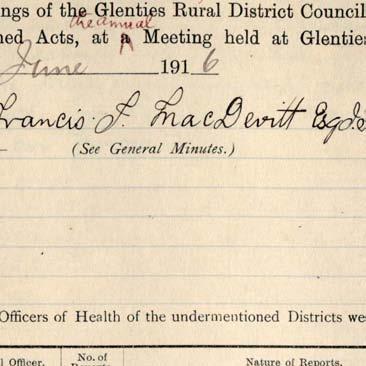 ngs of the Glenties Rural District Council
the annual
ned Acts, at a Meeting held at Glenties
June 1916
Francis. F. MacDevitt Esq
(See General Minutes.)
Officers of Health of the undermentioned Districts we
l Officer. No. of Nature of Reports.